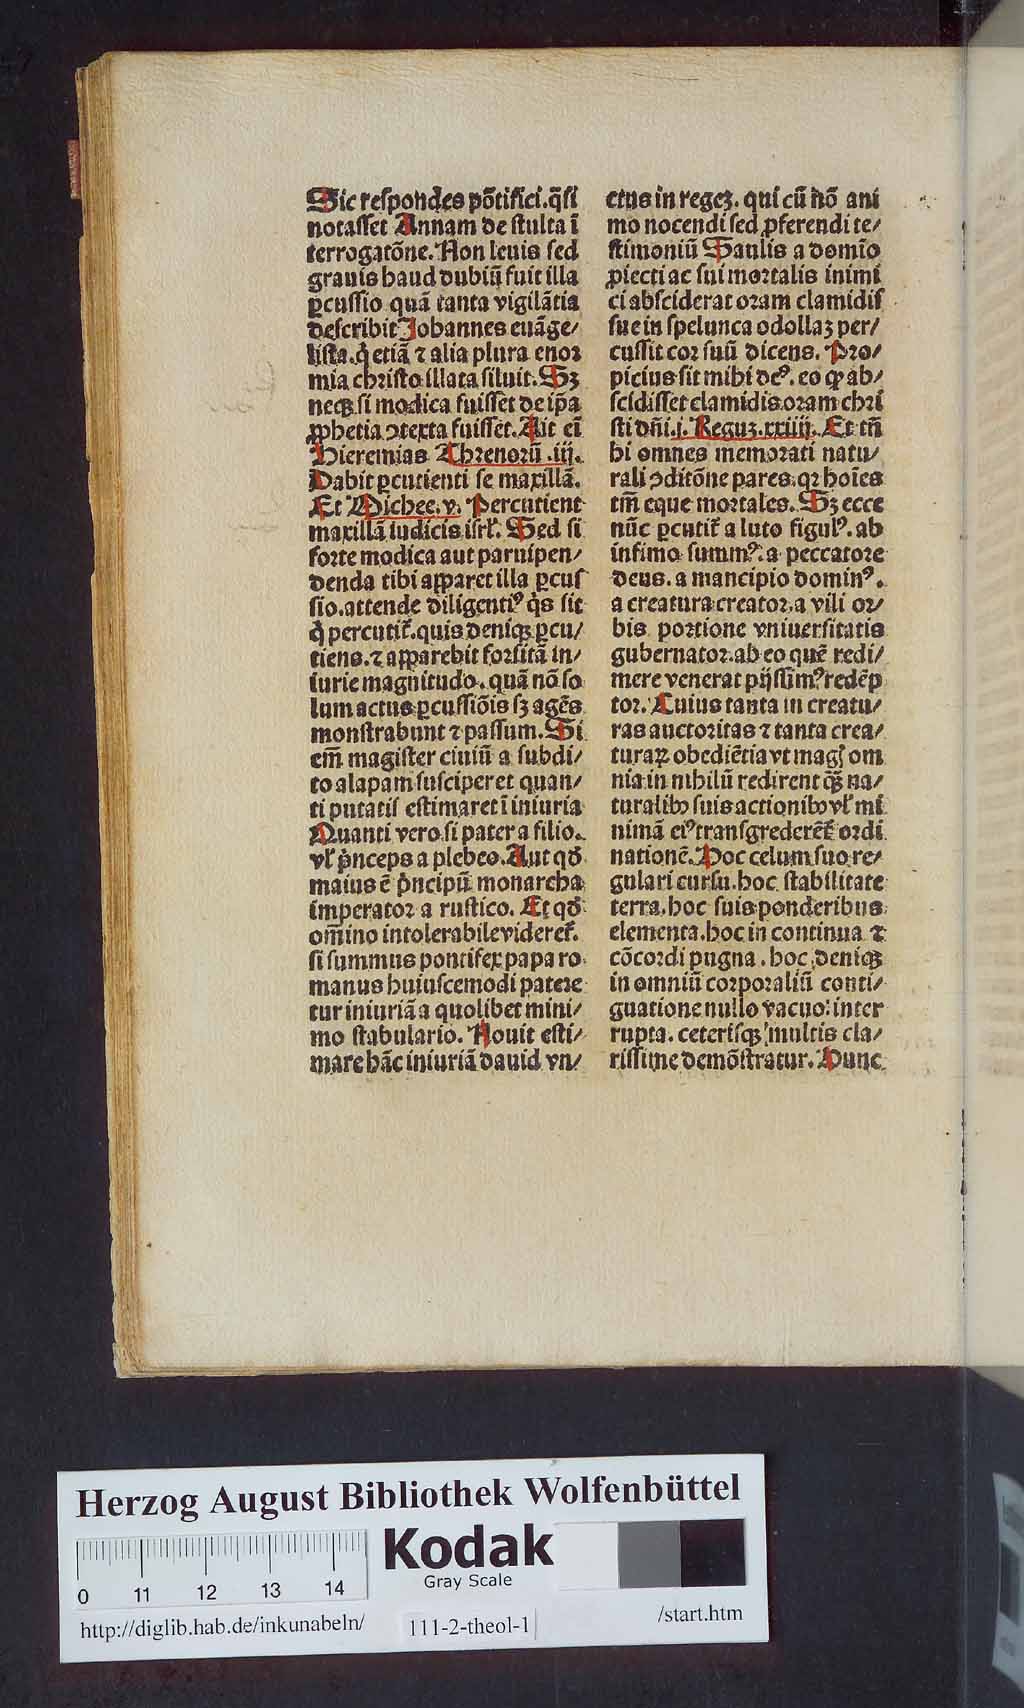 Sic respondes põtifici.q̃si
notasset Annam de stulta ĩ
terrogatõne. Non leuis sed
grauis haud dubiũ fuit illa
ꝑcussio quã tanta vigilãtia
describit Johannes euãge/
lista.q̇ etiã ⁊ alia plura enor
mia christo illata siluit. Sꝫ
neqꝫ si modica fuisset de ip̃a
ꝓphetia ↄtexta fuisset. Ait eĩ
Hieremias Threnorũ .iij.
Dabit ꝑcutienti se maxillã.
Et Michee.v. Percutient
maxillã iudicis isrł. Sed si
forte modica aut paruipen/
denda tibi apparet illa ꝑcus
sio.attende diligentiꝰ q̇s sit
q̇ percutit᷑.quis deniqꝫ ꝑcu/
tiens.⁊ apparebit forsitã in/
iurie magnitudo. quã nõ so
lum actus ꝑcussiõis sꝫ agẽs
monstrabunt ⁊ passum. Si
em̃ magister ciuiũ a subdi/
to alapam susciperet quan/
ti putatis estimaret ĩ iniuria
Quanti vero si pater a filio.
vł p̓nceps a plebeo. Aut qð
maius ẽ p̓ncipũ monarcha
imperator a rustico. Et qð
om̃ino intolerabile videret᷑.
si summus pontifex papa ro
manus huiuscemodi patere
tur iniuriã a quolibet mini/
mo stabulario. Nouit esti/
mare hãc iniuriã dauid vn/
ctus in regeꝫ. qui cũ nõ ani
mo nocendi sed ꝓferendi te/
stimoniũ Saulis a domĩo
ꝓiecti ac sui mortalis inimi
ci absciderat oram clamidis
sue in spelunca odollaꝫ per/
cussit cor suũ dicens. Pro/
picius sit mihi deꝰ. eo ꝙ ab/
scidisset clamidis oram chri
sti dñi.j. Reguꝫ.xxiiij. Et tñ
hi omnes memorati natu/
rali ↄditõne pares.qꝛ hoĩes
tm̃ eque mortales. Sꝫ ecce
nũc ꝑcutit᷑ a luto figulꝰ. ab
infimo summꝰ. a peccatore
deus. a mancipio dominꝰ.
a creatura creator.a vili or/
bis portione vniuersitatis
gubernator.ab eo quẽ redi/
mere venerat pijssimꝰ redẽp
tor. Cuius tanta in creatu/
ras auctoritas ⁊ tanta crea/
turaꝝ obediẽtia vt magꝭ om
nia in nihilũ redirent q̃ꝫ na/
turalibꝰ suis actionibꝰ vł mi
nimã eiꝰ transgrederẽt᷑ ordi
nationẽ. Hoc celum suo re/
gulari cursu.hoc stabilitate
terra.hoc suis ponderibus
elementa.hoc in continua ⁊
cõcordi pugna. hoc deniqꝫ
in omniũ corporaliũ conti/
guatione nullo vacuo inter
rupta. ceterisqꝫ multis cla/
rissime demõstratur. Hunc
Herzog August Bibliothek Wolfenbüttel
Kodak
Gray Scale
0 11 12 13 14
http://diglib.hab.de/inkunabeln/
111-2-theol-1
/start.htm